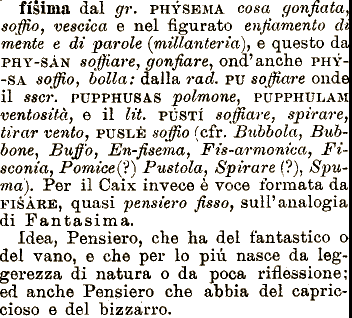 físima dal gr. PHYSEMA cosa gonfiata,
soffio, vescica e nel figurato enfiamento di
mente e di parole (millanteria), e questo da
PHY-SÀN soffiare, gonfiare, ond'anche PHY-
-SA soffio, bolla: dalla rad. PU soffiare onde
il sscr. PUPPHUSAS polmone, PUPPHULAM
ventosità, e il lit. PÚSTÍ soffiare, spirare,
tirar vento, PUSLĖ soffio (cfr. Bubbola, Bub-
bone, Buffo, En-fisema, Fis-armonica, Fi-
sconia, Pomice(?) Pustola, Spirare (?), Spu-
ma). Per il Caix invece è voce formata da
FISÀRE, quasi pensiero fisso, sull'analogia
di Fantasima.
Idea, Pensiero, che ha del fantastico o
del vano, e che per lo piú nasce da leg-
gerezza di natura o da poca riflessione;
ed anche Pensiero che abbia del capric-
cioso e del bizzarro.